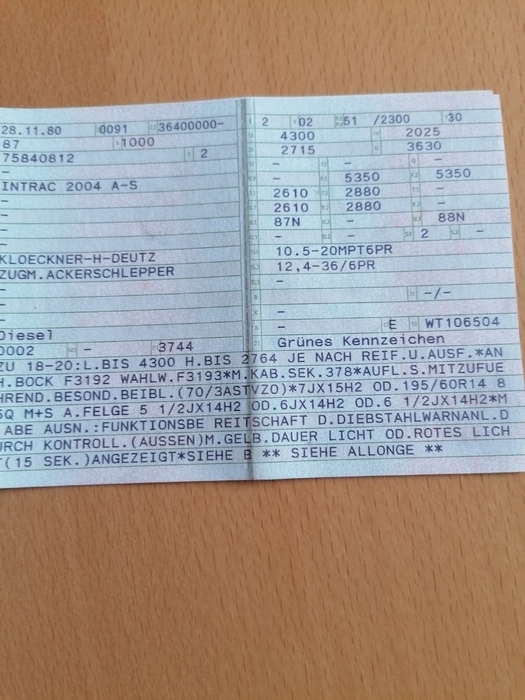 28.11.80 0091 36400000-
87 1000
75840812 2
-
INTRAC 2004 A-S
-
-
-
-
KLOECKNER-H-DEUTZ
ZUGM.ACKERSCHLEPPER
-
-
-
Diesel
0002 - 3744
2 02 51 /2300 30
4300 2025
2715 3630
- - -
- 5350 5350
2610 2880 -
2610 2880 -
87N - 88N
- - 2 -
10.5-20MPT6PR
12,4-36/6PR
-
- -/-
-
- E WT106504
Grünes Kennzeichen
ZU 18-20:L.BIS 4300 H.BIS 2764 JE NACH REIF.U.AUSF.*AN
H.BOCK F3192 WAHLW.F3193*M.KAB.SEK.378*AUFL.S.MITZUFUE
HREND.BESOND.BEIBL.(70/3ASTVZO)*7JX15H2 OD.195/60R14 8
5Q M+S A.FELGE 5 1/2JX14H2 OD.6JX14H2 OD.6 1/2JX14H2*M
ABE AUSN.:FUNKTIONSBE REITSCHAFT D.DIEBSTAHLWARNANL.D
URCH KONTROLL.(AUSSEN)M.GELB.DAUER LICHT OD.ROTES LICH
T(15 SEK.)ANGEZEIGT*SIEHE B ** SIEHE ALLONGE **